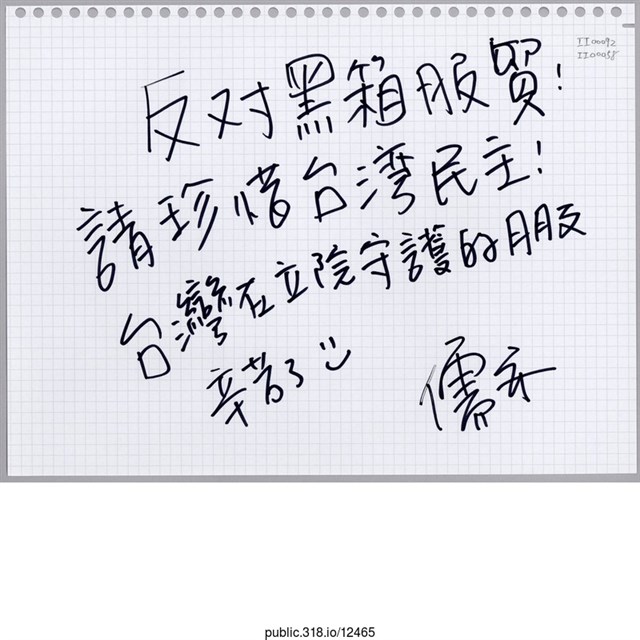 II00092
II00058
反对黑箱服貿!
請珍惜台湾民主!
台灣在立院守護的朋友
辛苦了
public.318.io/12465